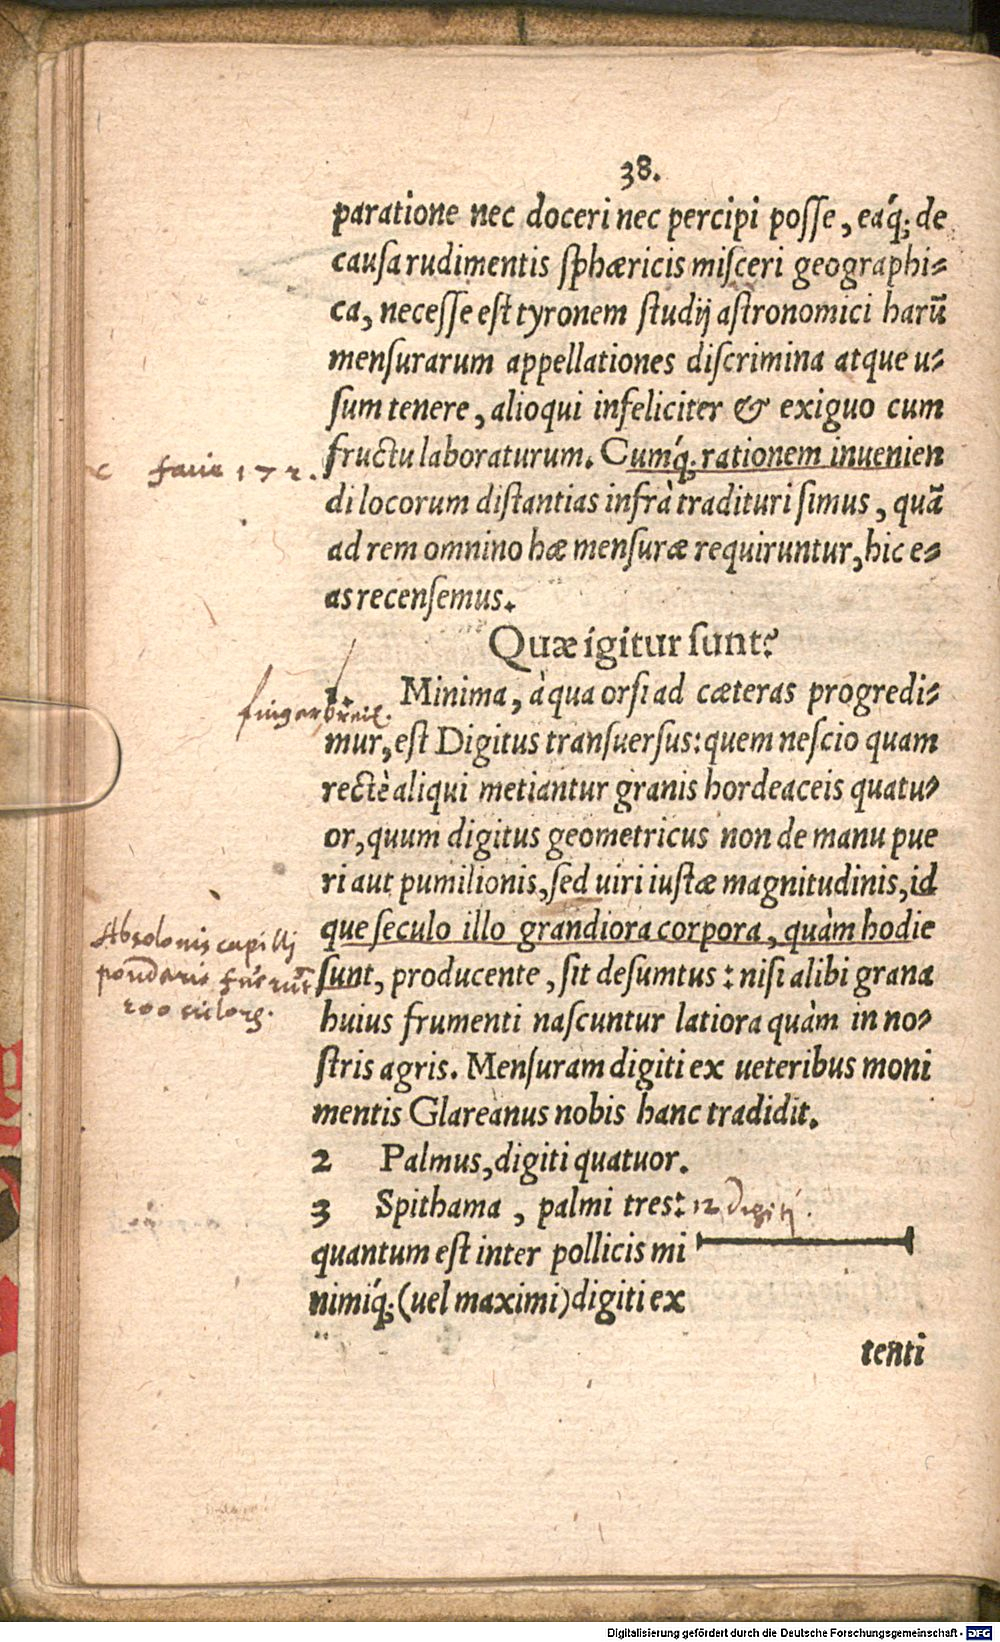 38.
paratione nec doceri nec percipi posse, eaq́; de
causa rudimentis sphæricis misceri geographi-
ca, necesse est tyronem studij astronomici harũ
mensurarum appellationes discrimina atque u-
sum tenere, alioqui infeliciter & exiguo cum
fructu laboraturum. Cumq́; rationem inuenien
c facie 172.
di locorum distantias infrà tradituri simus, quã
ad rem omnino hæ mensuræ requiruntur, hic e-
as recensemus.
Quæ igitur sunt?
1. Minima, à qua orsi ad cæteras progredi-
fingerbreit.
mur, est Digitus transuersus: quem nescio quam
rectè aliqui metiantur granis hordeaceis quatu-
or, quum digitus geometricus non de manu pue
ri aut pumilionis, sed uiri iustæ magnitudinis, id
que seculo illo grandiora corpora, quàm hodie
Absolonis capilli
sunt, producente, sit desumtus: nisi alibi grana
ponderis fuerũt
200
huius frumenti nascuntur latiora quàm in no-
stris agris. Mensuram digiti ex ueteribus moni
mentis Glareanus nobis hanc tradidit.
2 Palmus, digiti quatuor.
3 Spithama, palmi tres: 12 digiti.
quantum est inter pollicis mi
nimiq́; (uel maximi) digiti ex
tenti
Digitalisierung gefördert durch die Deutsche Forschungsgemeinschaft - DFG